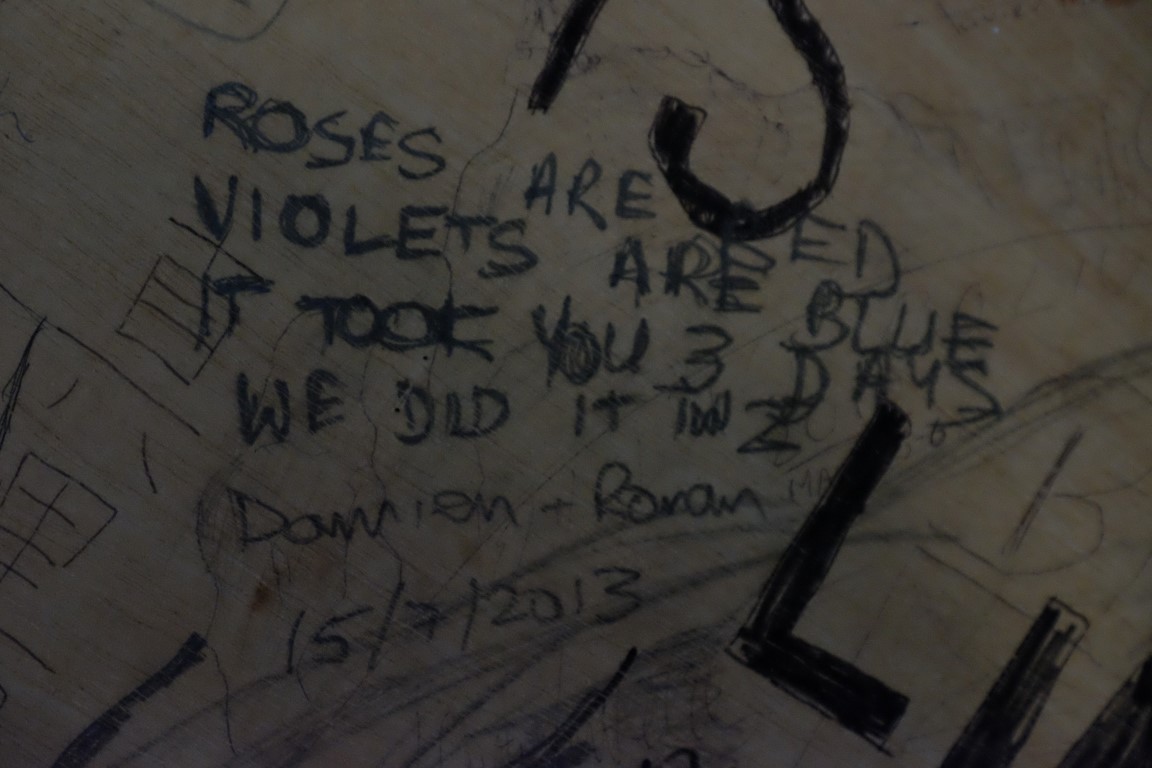 ROSES ARE RED
VIOLETS ARE BLUE
IT TOOK YOU 3 DAYS
WE DID IT IN 2
Damien + Ronan
15/7/2013